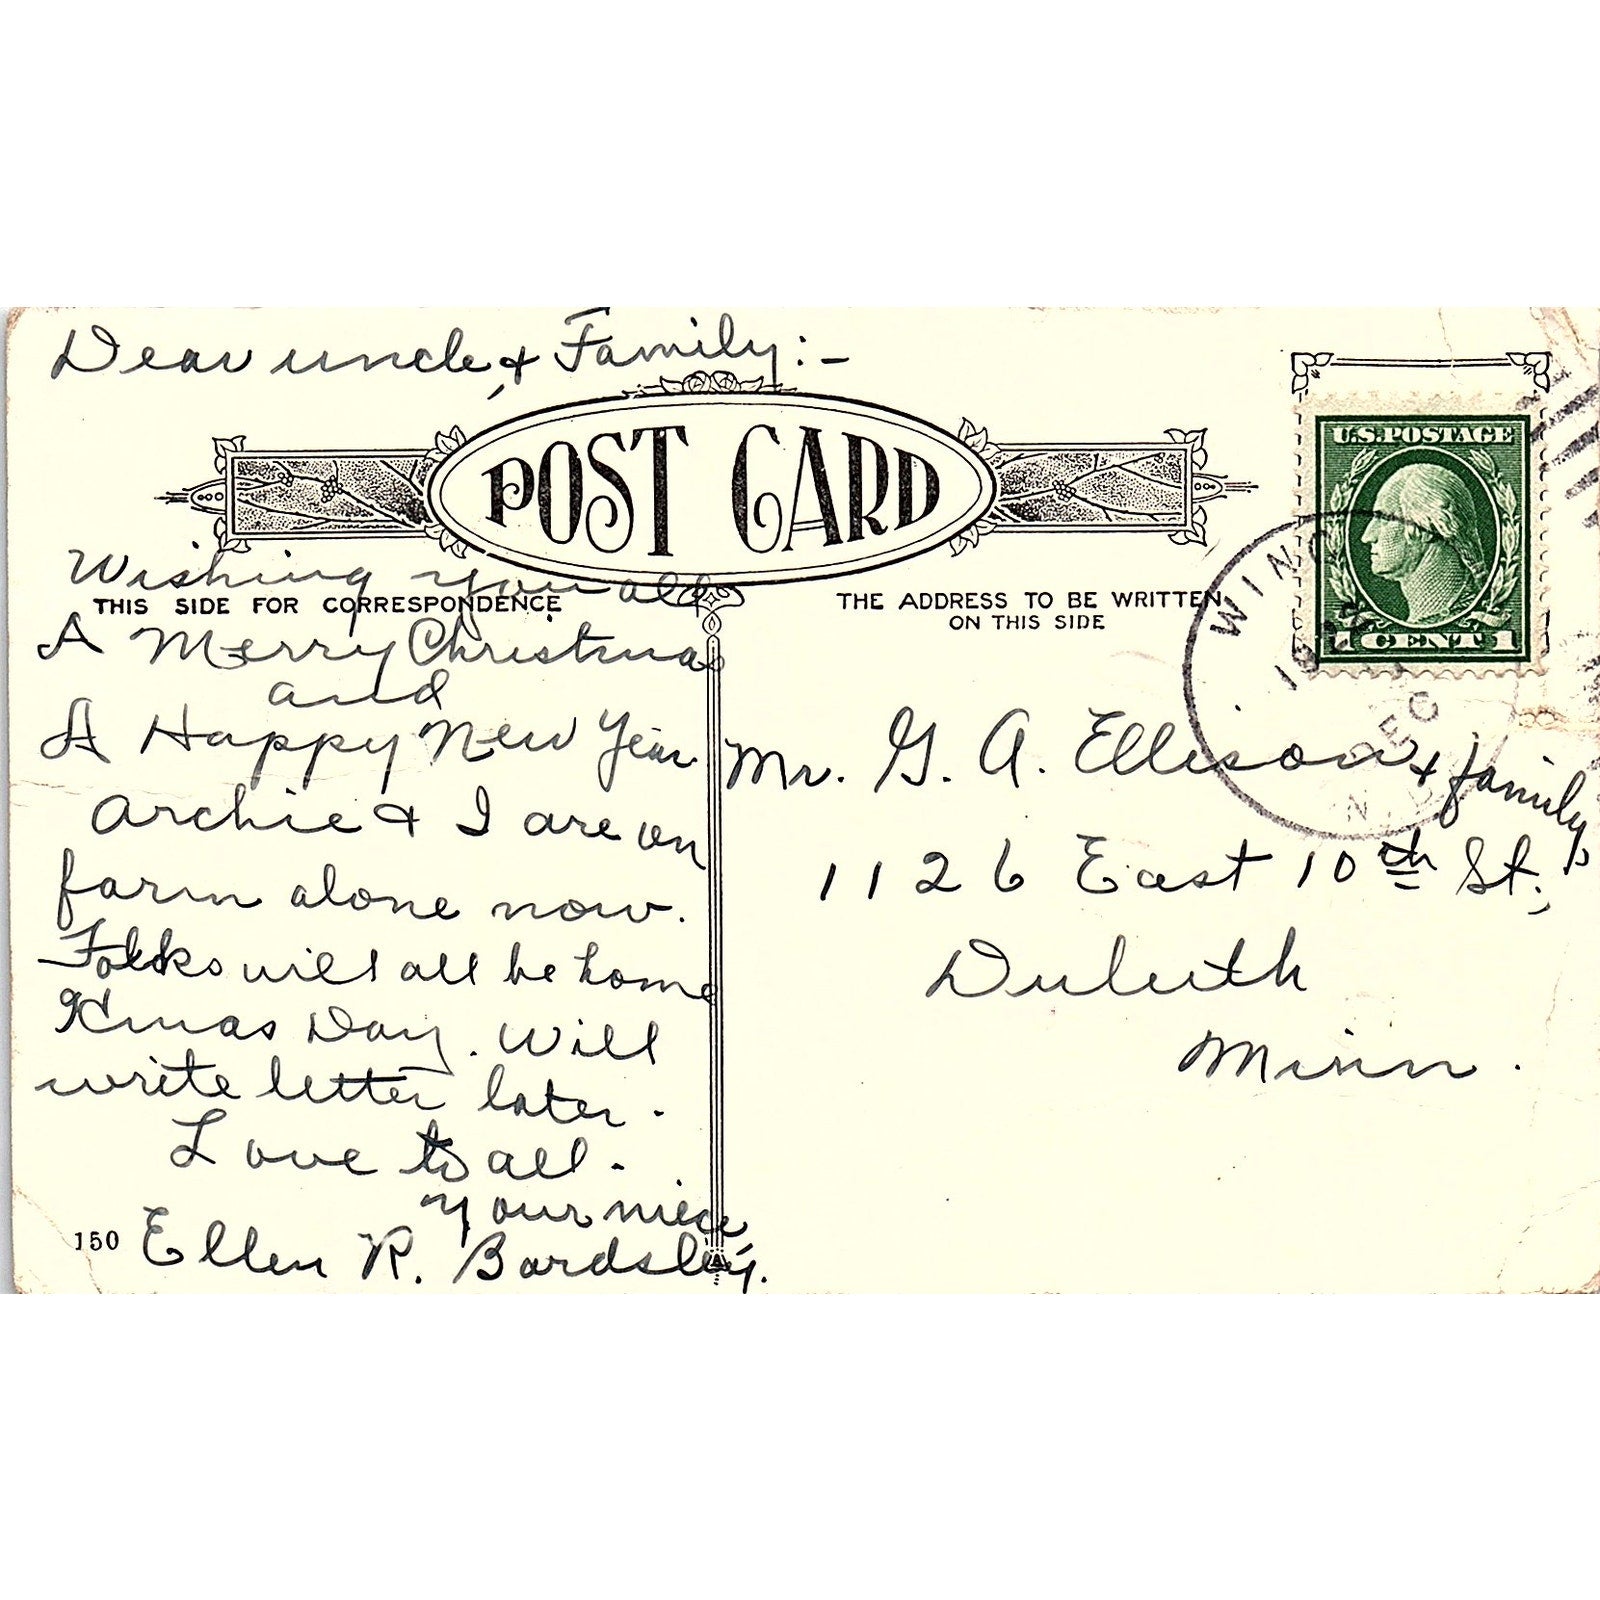 Dear uncle & Family:-
POST CARD
Wishing you all
THIS SIDE FOR CORRESPONDENCE
A Merry Christmas
and
A Happy New Year
Archie & I are on
farm alone now.
Folks will all be home
Xmas Day. Will
write letter later.
Love to all.
Your niece,
Ellen R. Bardsley.
150
THE ADDRESS TO BE WRITTEN
ON THIS SIDE
U.S. POSTAGE
1 CENT 1
WING
DEC
Mr. G. A. Ellison & family,
1126 East 10th St.,
Duluth
Minn.